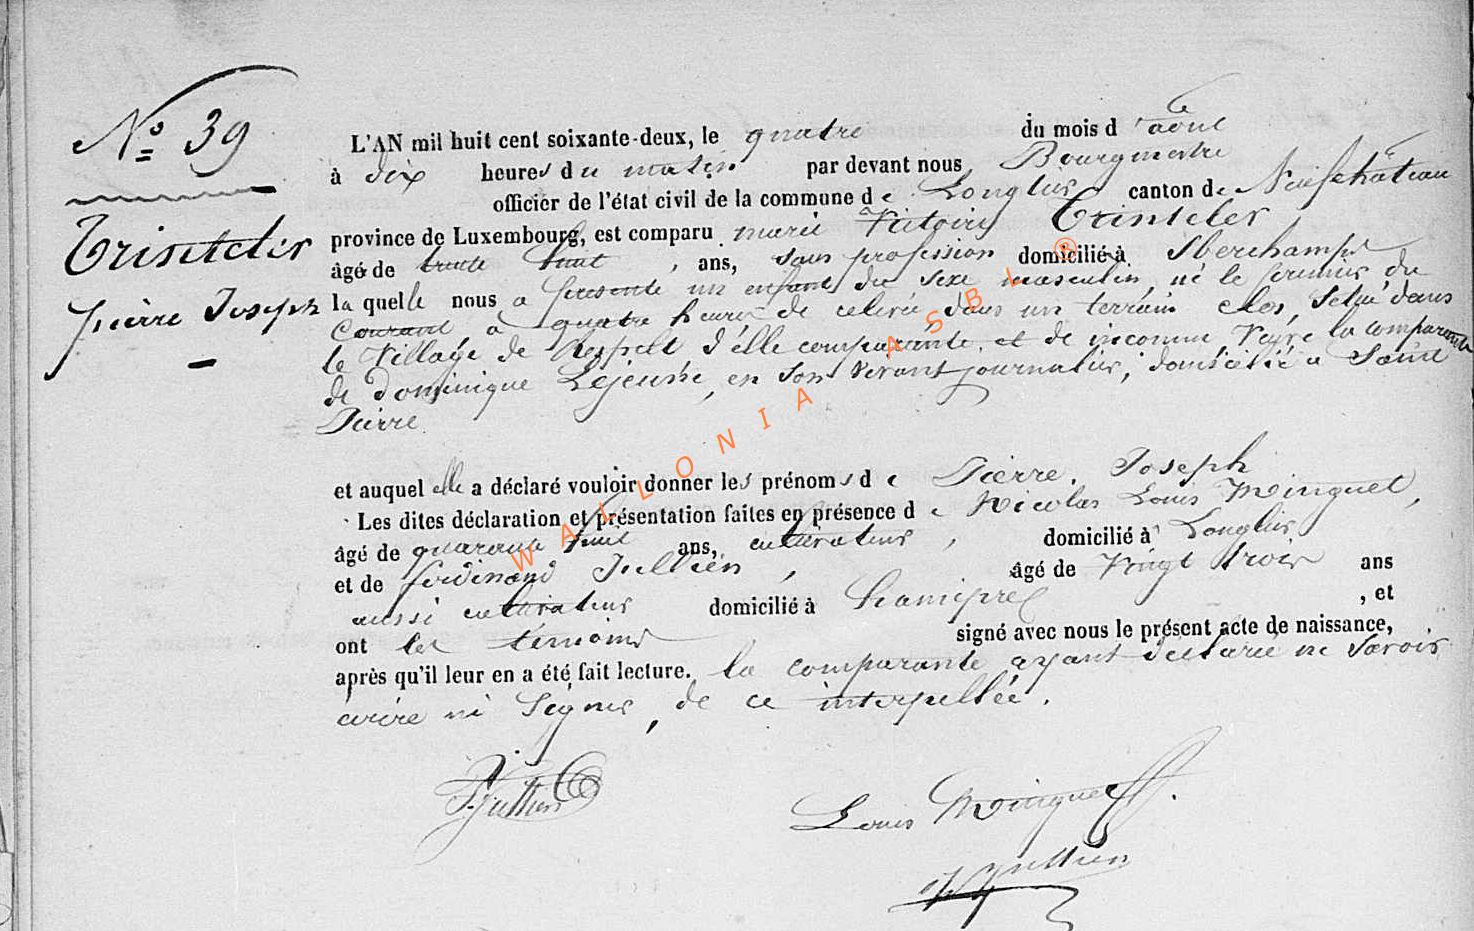 N° 39
Trinteler
pierre Joseph
L'AN mil huit cent soixante-deux, le quatre du mois d'aout
à dix heures du matin par devant nous Bourgmestre
officier de l'état civil de la commune de Longlier canton de Neufchâteau
province de Luxembourg, est comparu marie Victoire Trinteler
âgé de trente huit, ans, sans profession domicilié à
la quelle nous a présenté un enfant du sexe masculin, né le premier du
Courant à quatre heures de dans un terrain clos, situé dans
le Village de Respelt d'elle comparante, et de inconnu, Veuve la comparante
de Dominique Lejeune, en son vivant journalier, domicilié à Saint
Pierre
et auquel elle a déclaré vouloir donner les prénoms de Pierre. Joseph
Les dites déclaration et présentation faites en présence de Nicolas Louis Minguet,
âgé de quarante huit ans, cultivateur, domicilié à Longlier
et de ferdinand Jullien, âgé de Vingt trois ans
aussi cultivateur domicilié à hamipré, et
ont les temoins signé avec nous le présent acte de naissance,
après qu'il leur en a été fait lecture. la comparante ayant déclaré ne Savoir
écrire ni Signer, de ce interpellée.
F. Jullien
Louis Minguet
Jullien
WALLONIA ASBL ®